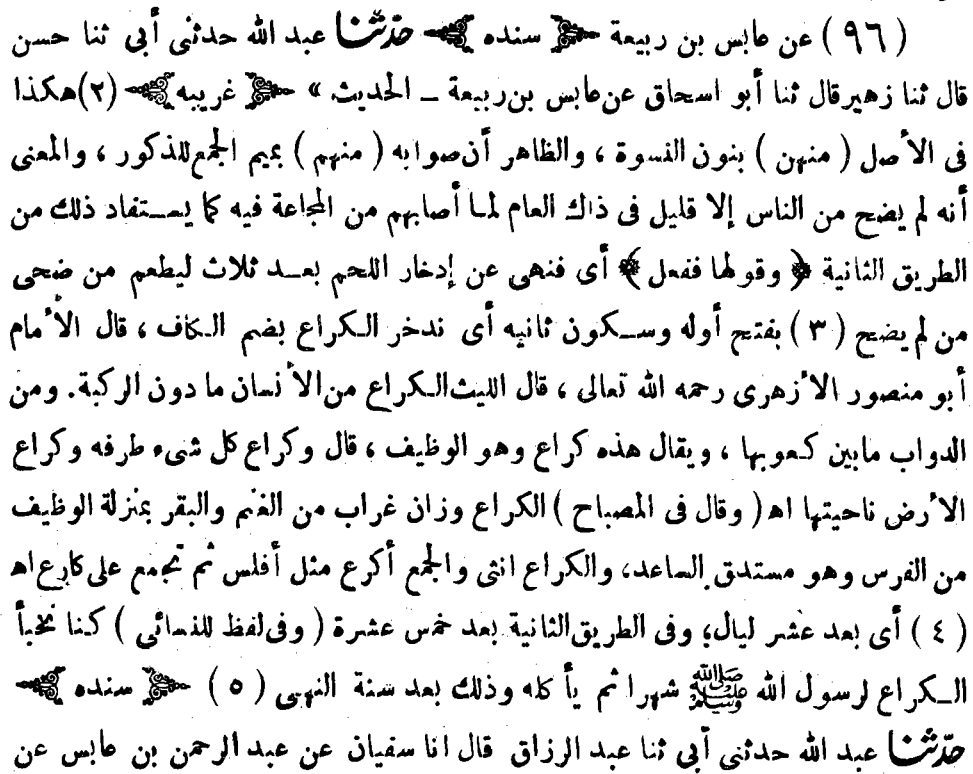 (٩٦) عن عابس بن ربيعة ﴿ سنده ﴾ حدّثنا عبد الله حدثني أبي ثنا حسن
قال ثنا زهير قال ثنا أبو اسحاق عن عابس بن ربيعة ــ الحديث » ﴿ غريبه ﴾ (٢) هكذا
في الأصل ( منهن ) بنون النسوة ، والظاهر أن صوابه ( منهم ) بميم الجمع للذكور ، والمعنى
أنه لم يضح من الناس إلا قليل في ذاك العام لما أصابهم من المجاعة فيه كما يستفاد ذلك من
الطريق الثانية ﴿ وقولها ففعل ﴾ أى فنهى عن إدخار اللحم بعد ثلاث ليطعم من ضحى
من لم يضح (٣) بفتح أوله وسكون ثانيه أى ندخر الكراع بضم الكاف ، قال الأمام
أبو منصور الأزهرى رحمه الله تعالى ، قال الليث الكراع من الأنسان ما دون الركبة. ومن
الدواب مابين كعوبها ، ويقال هذه كراع وهو الوظيف ، قال وكراع كل شىء طرفه وكراع
الأرض ناحيتها اه ( وقال في المصباح ) الكراع وزان غراب من الغنم والبقر بمنزلة الوظيف
من الفرس وهو مستدق الساعد، والكراع انثى والجمع أكرع مثل أفلس ثم تجمع على كارع اه
(٤) أى بعد عشر ليال، وفى الطريق الثانية بعد خمس عشرة ( وفى لفظ للنسائى ) كنا نخبأ
الكراع لرسول الله ﷺ شهرا ثم يأكله وذلك بعد سنة النهى (٥) ﴿ سنده ﴾
حدّثنا عبد الله حدثنى أبى ثنا عبد الرزاق قال انا سفيان عن عبد الرحمن بن عابس عن